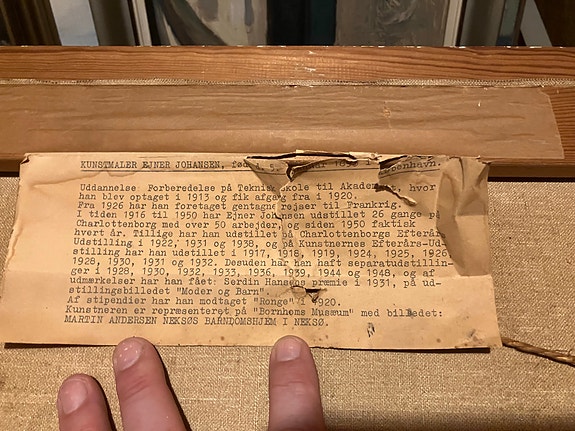 KUNSTMALER EJNER JOHANSEN, fød 1 i København.
Uddannelse Forberedelse på Teknisk Skole til Akademiet, hvor
han blev optaget i 1913 og fik afgang fra i 1920.
Fra 1926 har han foretaget gentagne rejser til Frankrig.
I tiden 1916 til 1950 har Ejner Johansen udstillet 26 gange på
Charlottenborg med over 50 arbejder, og siden 1950 faktisk
hvert år. Tillige har han udstillet på Charlottenborgs Efterårs
Udstilling i 1922, 1931 og 1938, og på Kunstnernes Efterårs-Ud-
stilling har han udstillet i 1917, 1918, 1919, 1924, 1925, 1926
1928, 1930, 1931 og 1932. Desuden har han haft separatudstillin-
ger i 1928, 1930, 1932, 1933, 1936, 1939, 1944 og 1948, og af
udmærkelser har han fået: Serdin Hansens præmie i 1931, på ud-
stillingsbilledet "Moder og Barn".
Af stipendier har han modtaget "Ronge" i 1920.
Kunstneren er repræsenteret på "Bornholms Musæum" med billedet:
MARTIN ANDERSEN NEKSØS BARNDOMSHJEM I NEKSØ.